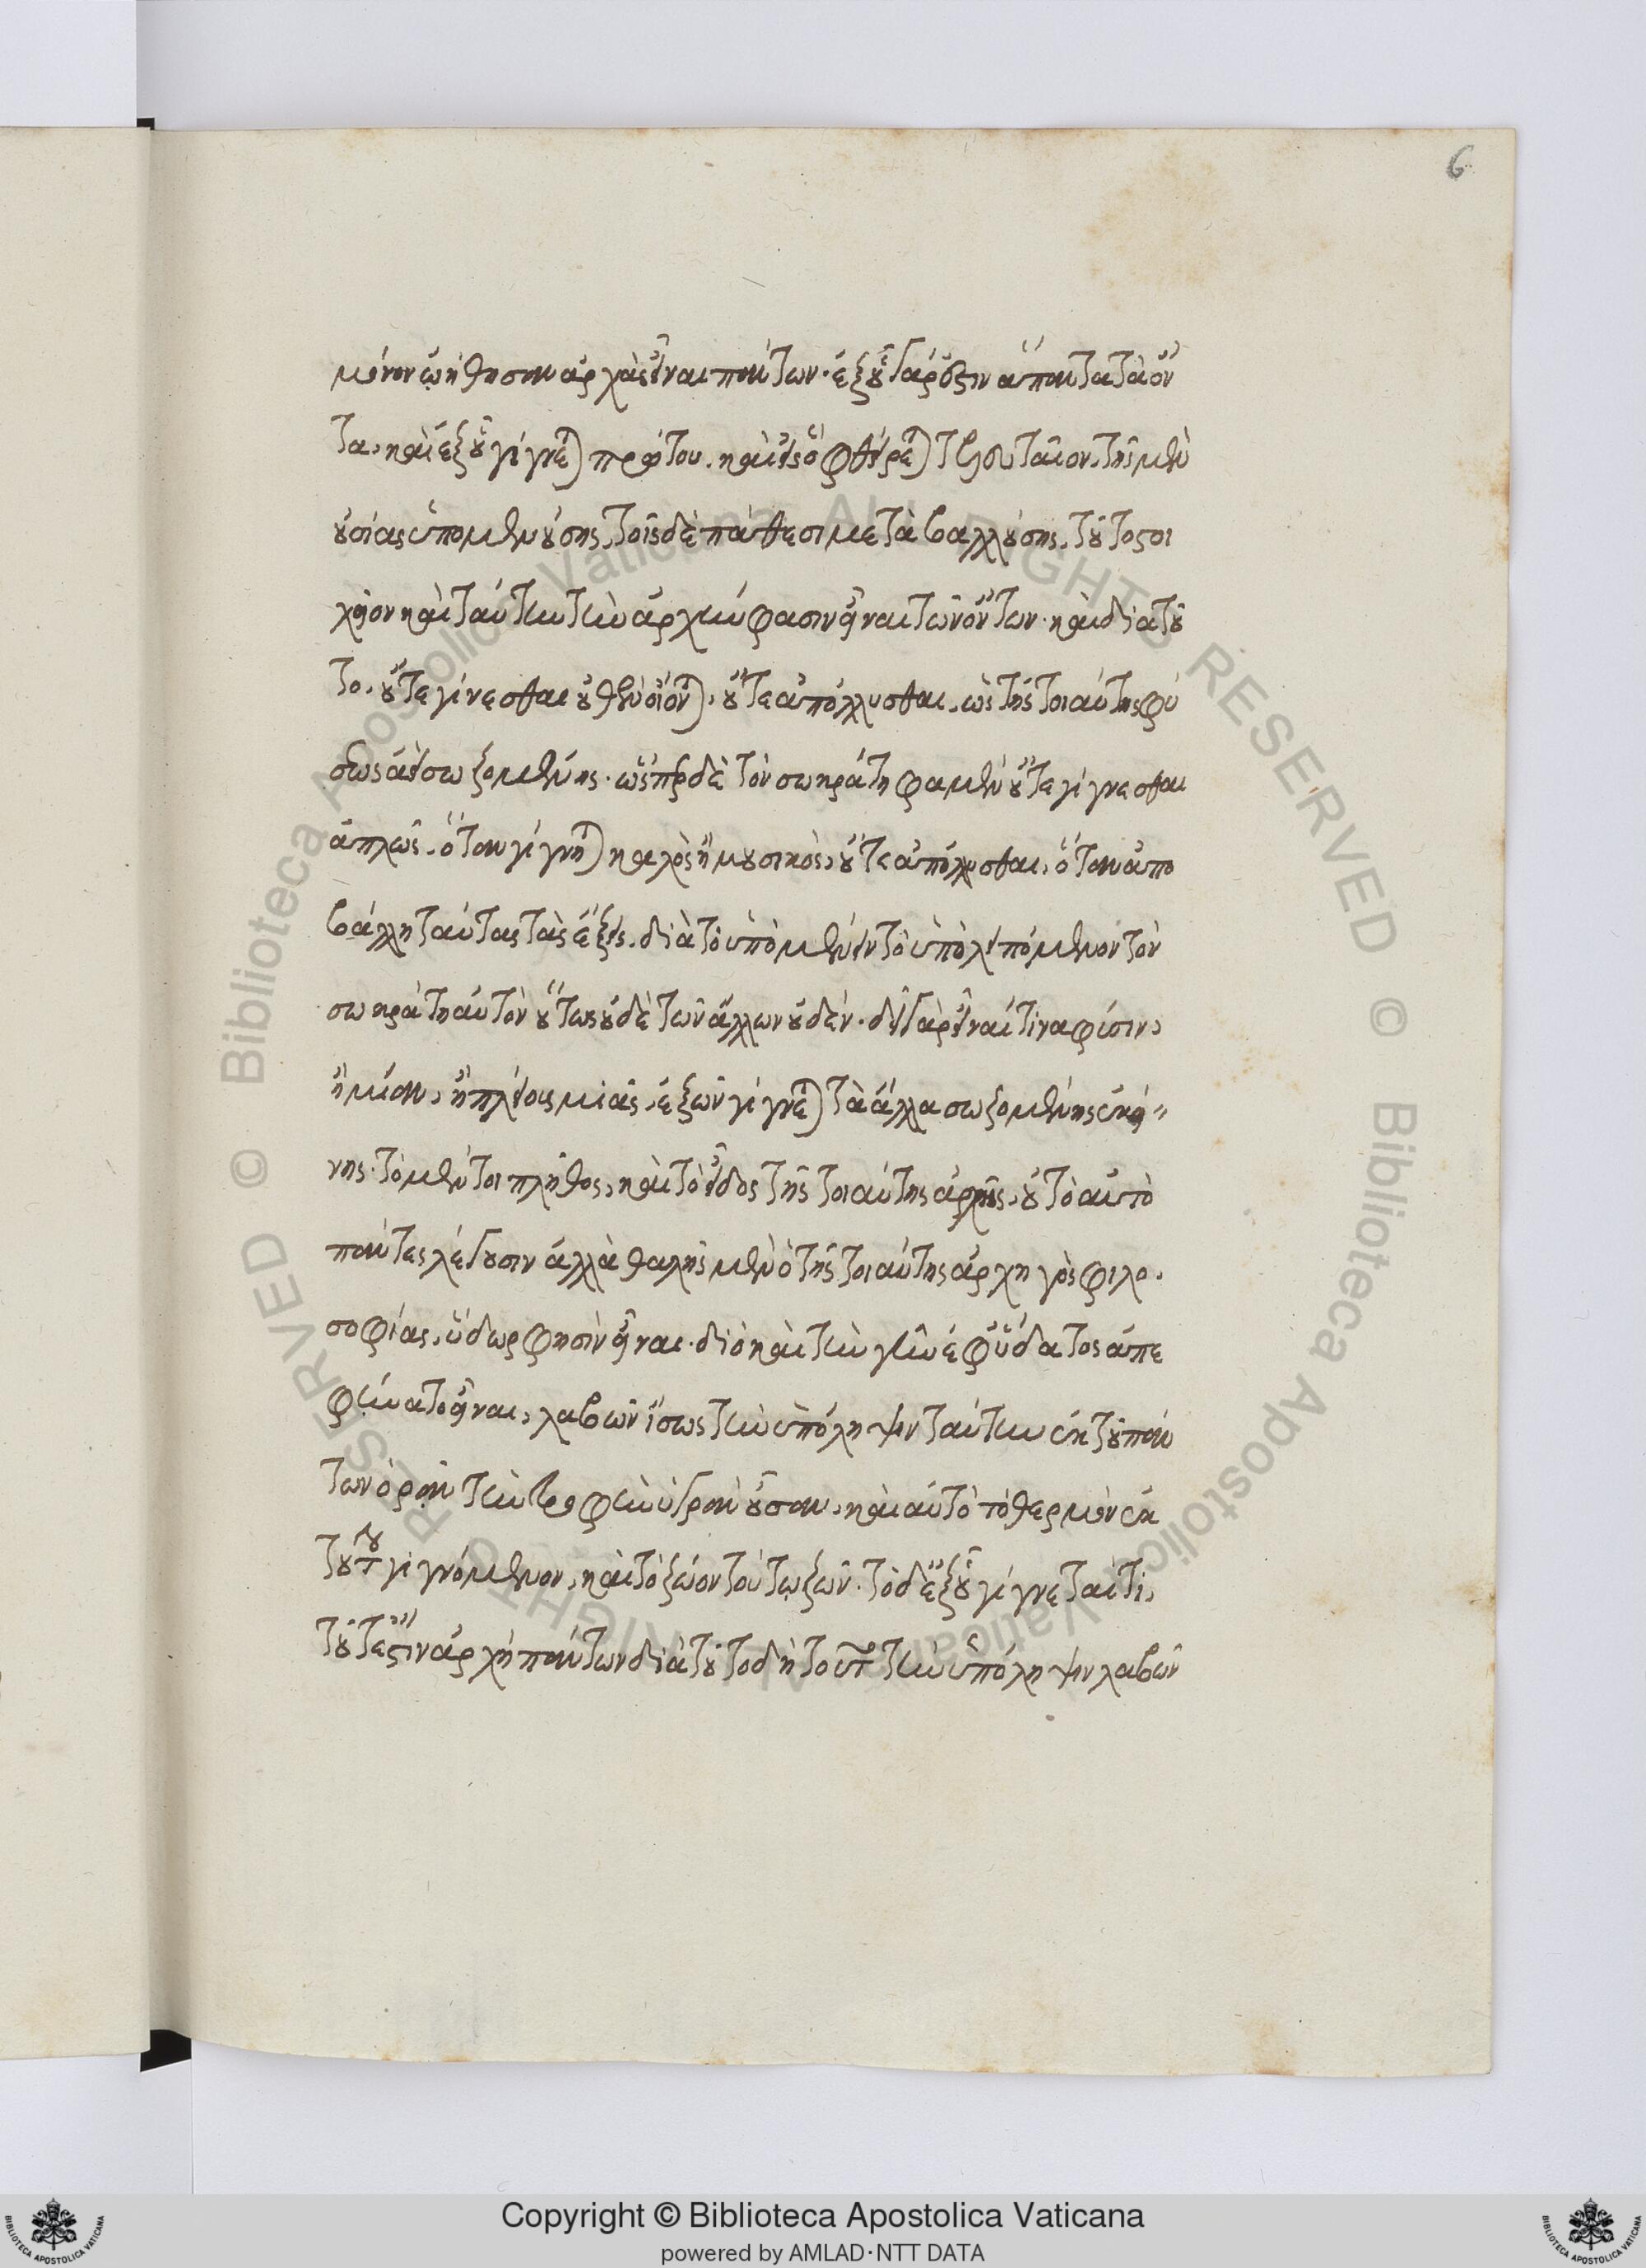 6
μόνον ᾠήθησαν ἀρχὰς εἶναι πάντων· ἐξ οὗ γάρ ἐστιν ἅπαντα τὰ ὄν
τα, καὶ ἐξ οὗ γίγνεται πρώτου, καὶ εἰς ὃ φθείρεται τελευταῖον, τῆς μὲν
οὐσίας ὑπομενούσης, τοῖς δὲ πάθεσι μεταβαλλούσης, τοῦτο στοι
χεῖον καὶ ταύτην τὴν ἀρχήν φασιν εἶναι τῶν ὄντων· καὶ διὰ τοῦ
το, οὔτε γίνεσθαι οὐθὲν οἴονται, οὔτε ἀπόλλυσθαι, ὡς τῆς τοιαύτης φύ
σεως ἀεὶ σωζομένης· ὥσπερ δὲ τὸν σωκράτη φαμὲν οὔτε γίγνεσθαι
ἁπλῶς, ὅταν γίγνηται καλὸς ἢ μουσικός, οὔτε ἀπόλλυσθαι, ὅταν ἀπο
βάλλη ταύτας τὰς ἕξεις, διὰ τὸ ὑπομένειν τὸ ὑπολειπόμενον τὸν
σωκράτη αὐτὸν οὕτως οὐδὲ τῶν ἄλλων οὐδέν· δεῖ γὰρ εἶναί τινα φύσιν,
ἢ μίαν, ἢ πλείους μιᾶς, ἐξ ὧν γίγνεται τὰ ἄλλα σωζομένης ἐκεί
νης· τὸ μέντοι πλῆθος, καὶ τὸ εἶδος τῆς τοιαύτης ἀρχῆς, οὐ τὸ αὐτὸ
πάντες λέγουσιν ἀλλὰ θαλῆς μὲν ὁ τῆς τοιαύτης ἀρχηγὸς φιλο
σοφίας, ὕδωρ φησὶν εἶναι· διὸ καὶ τὴν γῆν ἐφ' ὕδατος ἀπε
φήνατο εἶναι, λαβὼν ἴσως τὴν ὑπόληψιν ταύτην ἐκ τοῦ πάν
των ὁρᾶν τὴν τροφὴν ὑγρὰν οὖσαν, καὶ αὐτὸ τὸ θερμὸν ἐκ
τούτου γιγνόμενον, καὶ τὸ ζῶον τούτῳ ζῶν· τὸ δὲ ἐξ οὗ γίγνεταί τι,
τοῦτ' ἐστὶν ἀρχὴ πάντων διὰ τοῦτο δὴ τοῦτο τὴν ὑπόληψιν λαβὼν
Copyright © Biblioteca Apostolica Vaticana
powered by AMLAD·NTT DATA